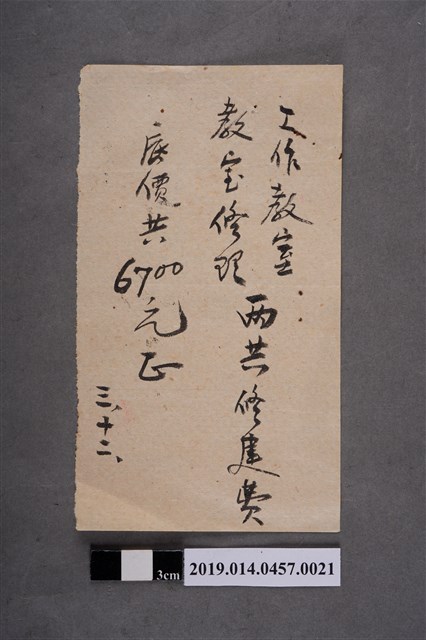 工作教室
教室修理
两共修建費
底價共
6700
元正
三、十二、
3cm
2019.014.0457.0021